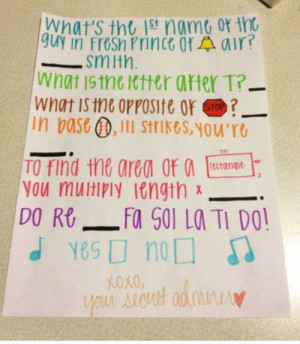 What's the 1st name of the
guy in Fresh Prince of air?
____ Smith.
What is the letter after T? __
What is the opposite of STOP ? __
In base , 111 strikes, you're
____.
To find the area of a rectangle
you multiply length x ____.
DO Re ____ Fa Sol La Ti DO!
yes no
xoxo,
your secret admirer